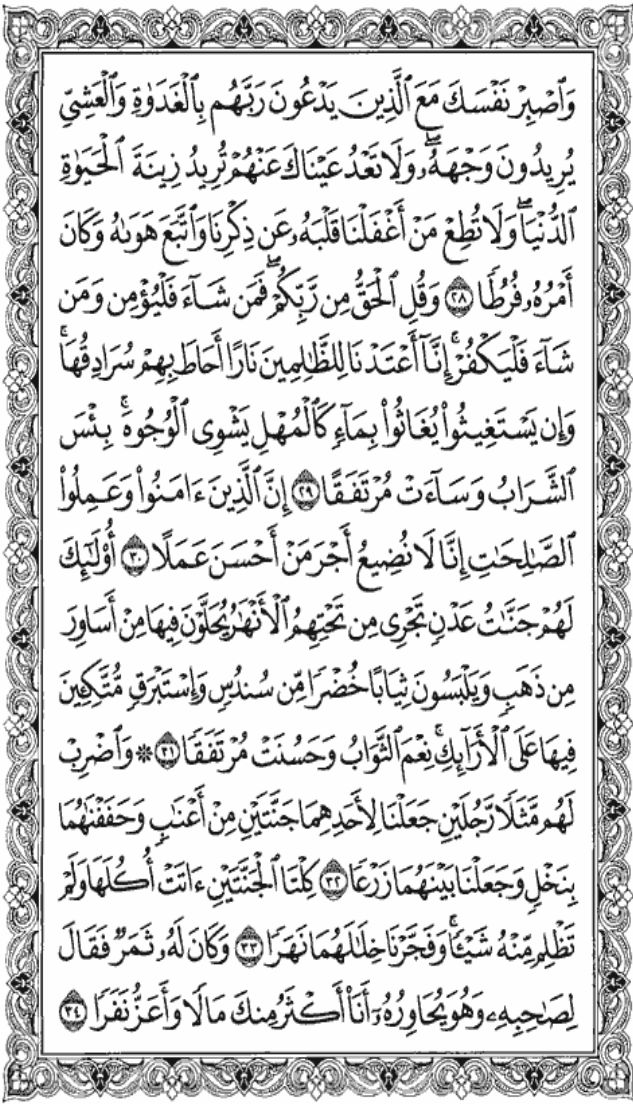 وَٱصْبِرْ نَفْسَكَ مَعَ ٱلَّذِينَ يَدْعُونَ رَبَّهُم بِٱلْغَدَوٰةِ وَٱلْعَشِىِّ
يُرِيدُونَ وَجْهَهُۥۖ وَلَا تَعْدُ عَيْنَاكَ عَنْهُمْ تُرِيدُ زِينَةَ ٱلْحَيَوٰةِ
ٱلدُّنْيَاۖ وَلَا تُطِعْ مَنْ أَغْفَلْنَا قَلْبَهُۥ عَن ذِكْرِنَا وَٱتَّبَعَ هَوَىٰهُ وَكَانَ
أَمْرُهُۥ فُرُطًا ٢٨ وَقُلِ ٱلْحَقُّ مِن رَّبِّكُمْۖ فَمَن شَآءَ فَلْيُؤْمِن وَمَن
شَآءَ فَلْيَكْفُرْۚ إِنَّآ أَعْتَدْنَا لِلظَّٰلِمِينَ نَارًا أَحَاطَ بِهِمْ سُرَادِقُهَاۚ
وَإِن يَسْتَغِيثُوا۟ يُغَاثُوا۟ بِمَآءٍ كَٱلْمُهْلِ يَشْوِى ٱلْوُجُوهَۚ بِئْسَ
ٱلشَّرَابُ وَسَآءَتْ مُرْتَفَقًا ٢٩ إِنَّ ٱلَّذِينَ ءَامَنُوا۟ وَعَمِلُوا۟
ٱلصَّٰلِحَٰتِ إِنَّا لَا نُضِيعُ أَجْرَ مَنْ أَحْسَنَ عَمَلًا ٣٠ أُو۟لَٰٓئِكَ
لَهُمْ جَنَّٰتُ عَدْنٍ تَجْرِى مِن تَحْتِهِمُ ٱلْأَنْهَٰرُ يُحَلَّوْنَ فِيهَا مِنْ أَسَاوِرَ
مِن ذَهَبٍ وَيَلْبَسُونَ ثِيَابًا خُضْرًا مِّن سُندُسٍ وَإِسْتَبْرَقٍ مُّتَّكِـِٔينَ
فِيهَا عَلَى ٱلْأَرَآئِكِۚ نِعْمَ ٱلثَّوَابُ وَحَسُنَتْ مُرْتَفَقًا ٣١ ۞ وَٱضْرِبْ
لَهُم مَّثَلًا رَّجُلَيْنِ جَعَلْنَا لِأَحَدِهِمَا جَنَّتَيْنِ مِنْ أَعْنَٰبٍ وَحَفَفْنَٰهُمَا
بِنَخْلٍ وَجَعَلْنَا بَيْنَهُمَا زَرْعًا ٣٢ كِلْتَا ٱلْجَنَّتَيْنِ ءَاتَتْ أُكُلَهَا وَلَمْ
تَظْلِم مِّنْهُ شَيْـًٔاۚ وَفَجَّرْنَا خِلَٰلَهُمَا نَهَرًا ٣٣ وَكَانَ لَهُۥ ثَمَرٌ فَقَالَ
لِصَٰحِبِهِۦ وَهُوَ يُحَاوِرُهُۥٓ أَنَا۠ أَكْثَرُ مِنكَ مَالًا وَأَعَزُّ نَفَرًا ٣٤